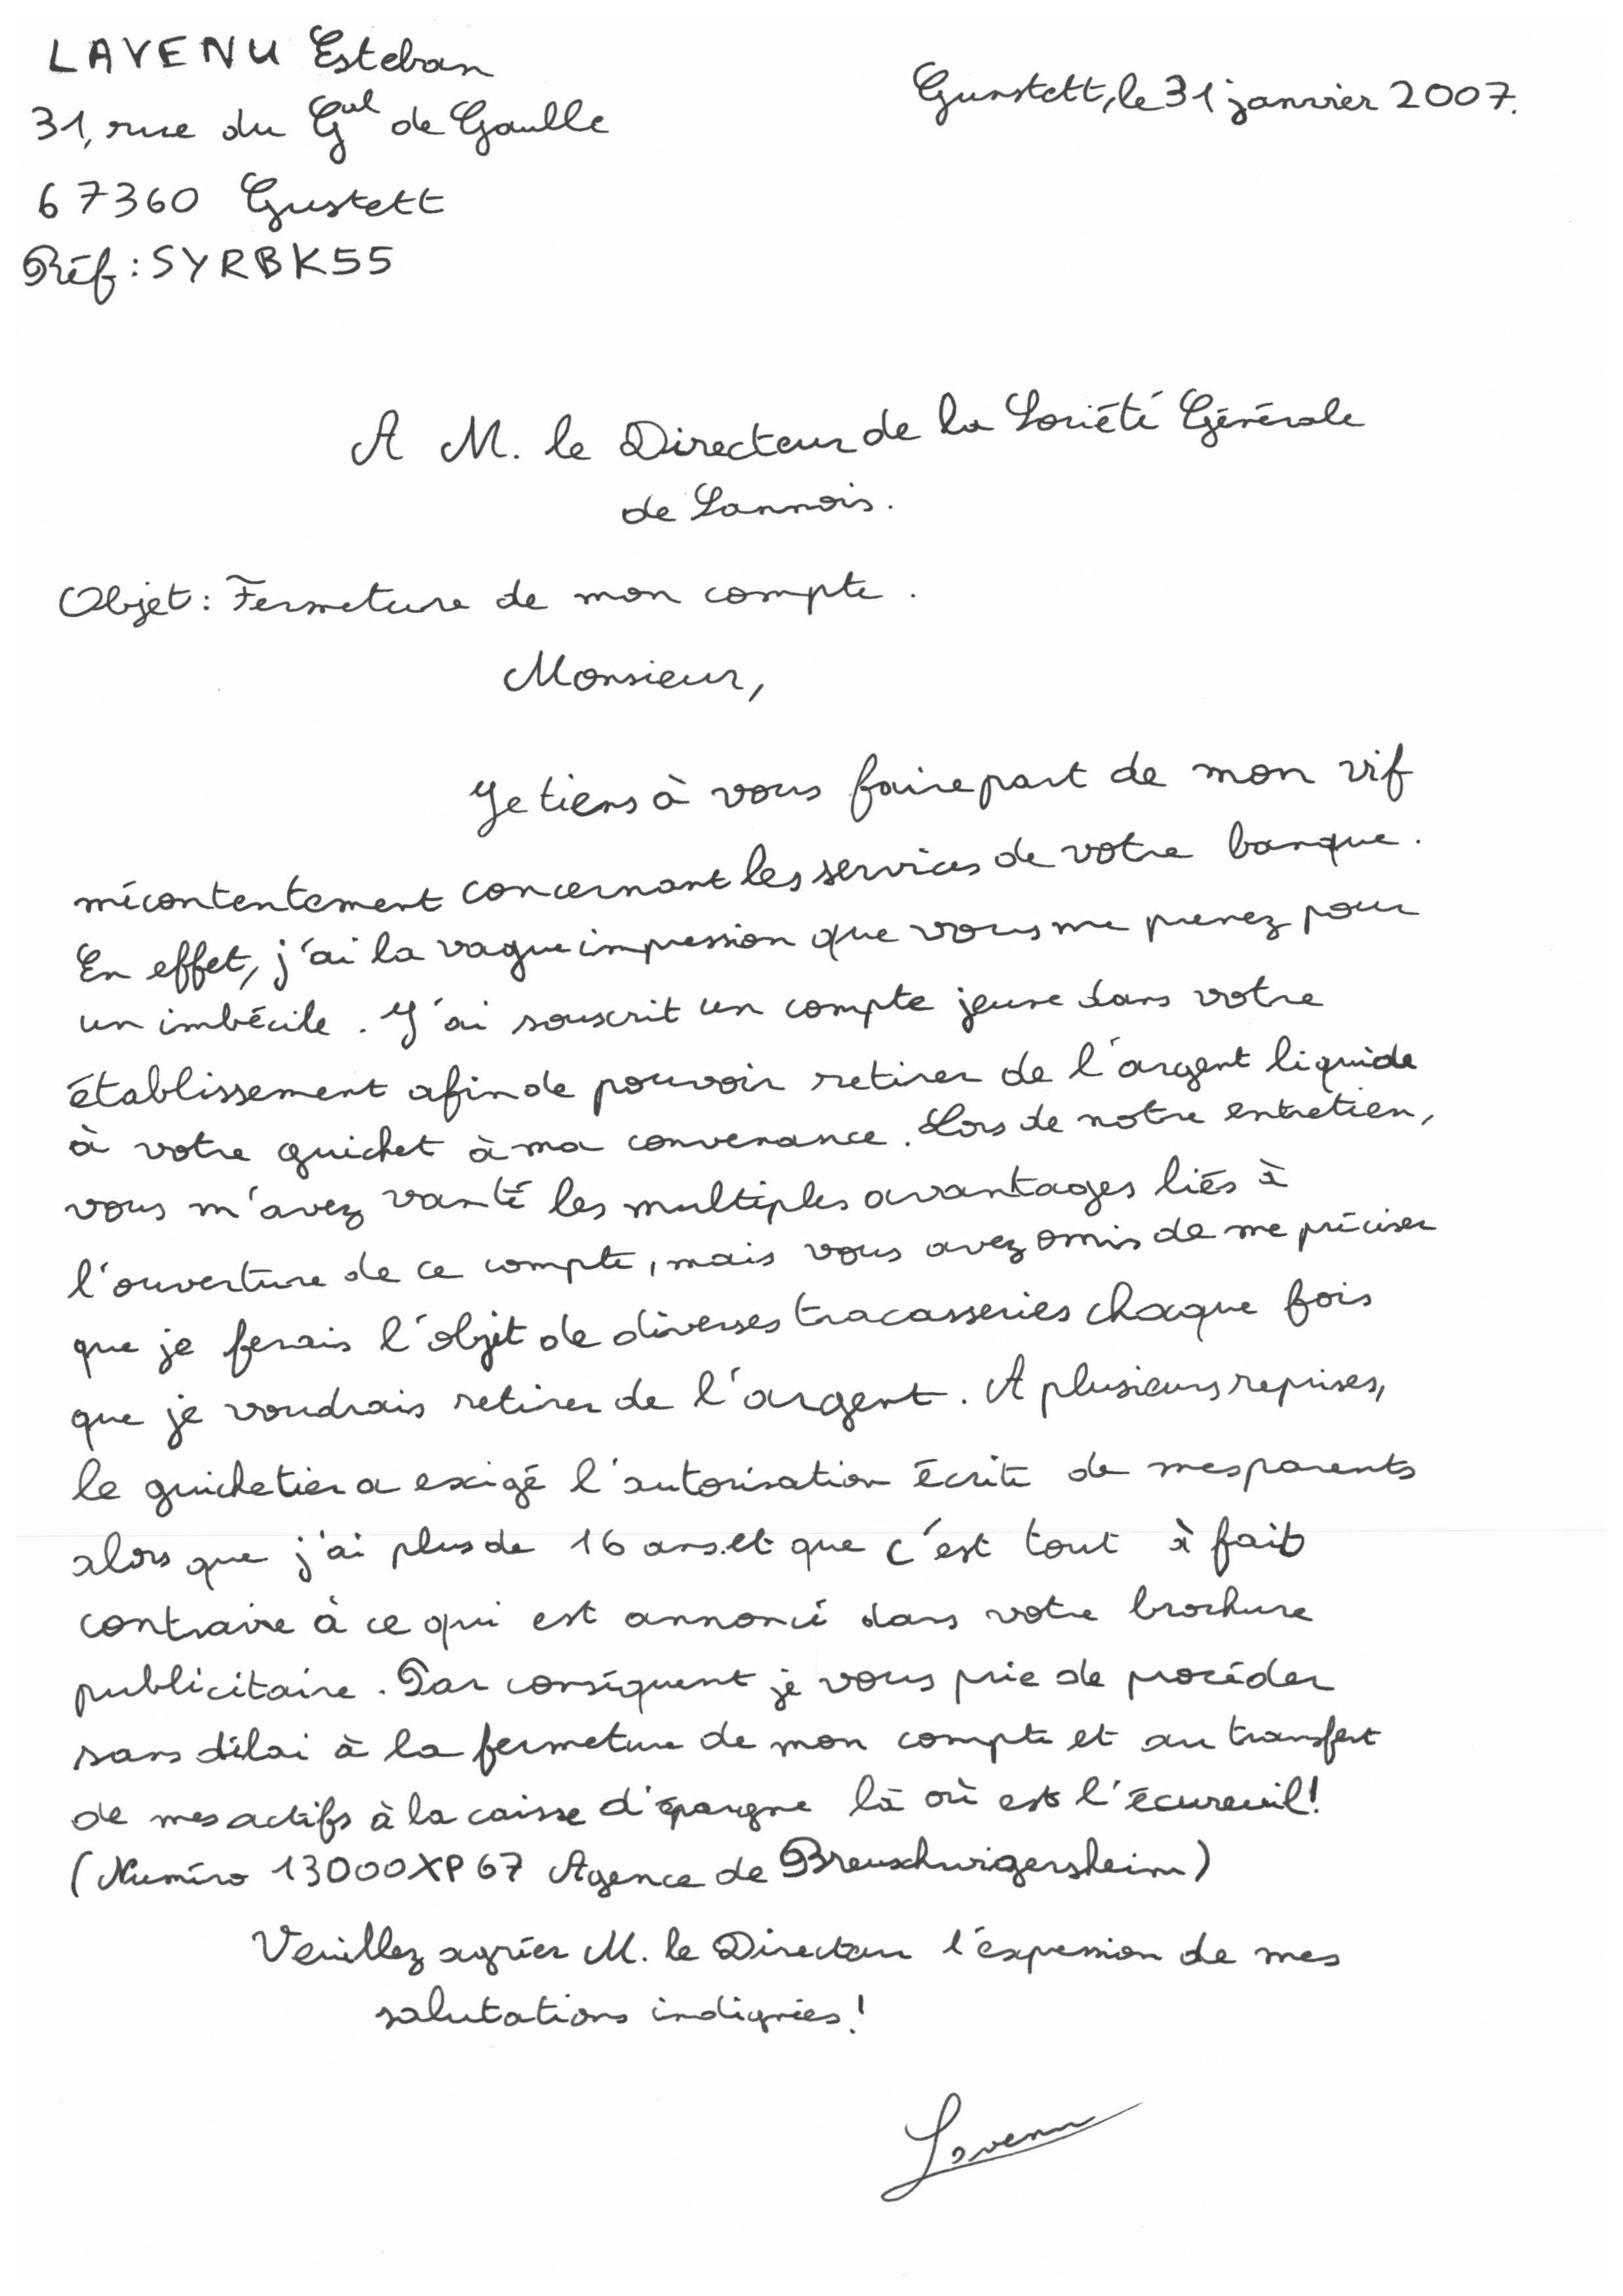 LAVENU Esteban
Gunstett, le 31 janvier 2007.
31, rue du Gal de Gaulle
67360 Gustett
Réf : SYRBK55
A M. le Directeur de la Société Générale
de Sannois.
Objet : Fermeture de mon compte.
Monsieur,
Je tiens à vous faire part de mon vif
mécontentement concernant les services de votre banque.
En effet, j'ai la vague impression que vous me prenez pour
un imbécile. J'ai souscrit un compte jeune dans votre
établissement afin de pouvoir retirer de l'argent liquide
à votre guichet à ma convenance. Lors de notre entretien,
vous m'avez vanté les multiples avantages liés à
l'ouverture de ce compte, mais vous avez omis de me préciser
que je ferais l'objet de diverses tracasseries chaque fois
que je voudrais retirer de l'argent. A plusieurs reprises,
le guichetier a exigé l'autorisation écrite de mes parents
alors que j'ai plus de 16 ans et que c'est tout à fait
contraire à ce qui est annoncé dans votre brochure
publicitaire. Par conséquent je vous prie de procéder
sans délai à la fermeture de mon compte et au transfert
de mes actifs à la caisse d'épargne là où est l'écureuil!
(Numéro 13000XP67 Agence de Breuschwigersheim)
Veuillez agréer M. le Directeur l'expression de mes
salutations indignées!
Lavenu